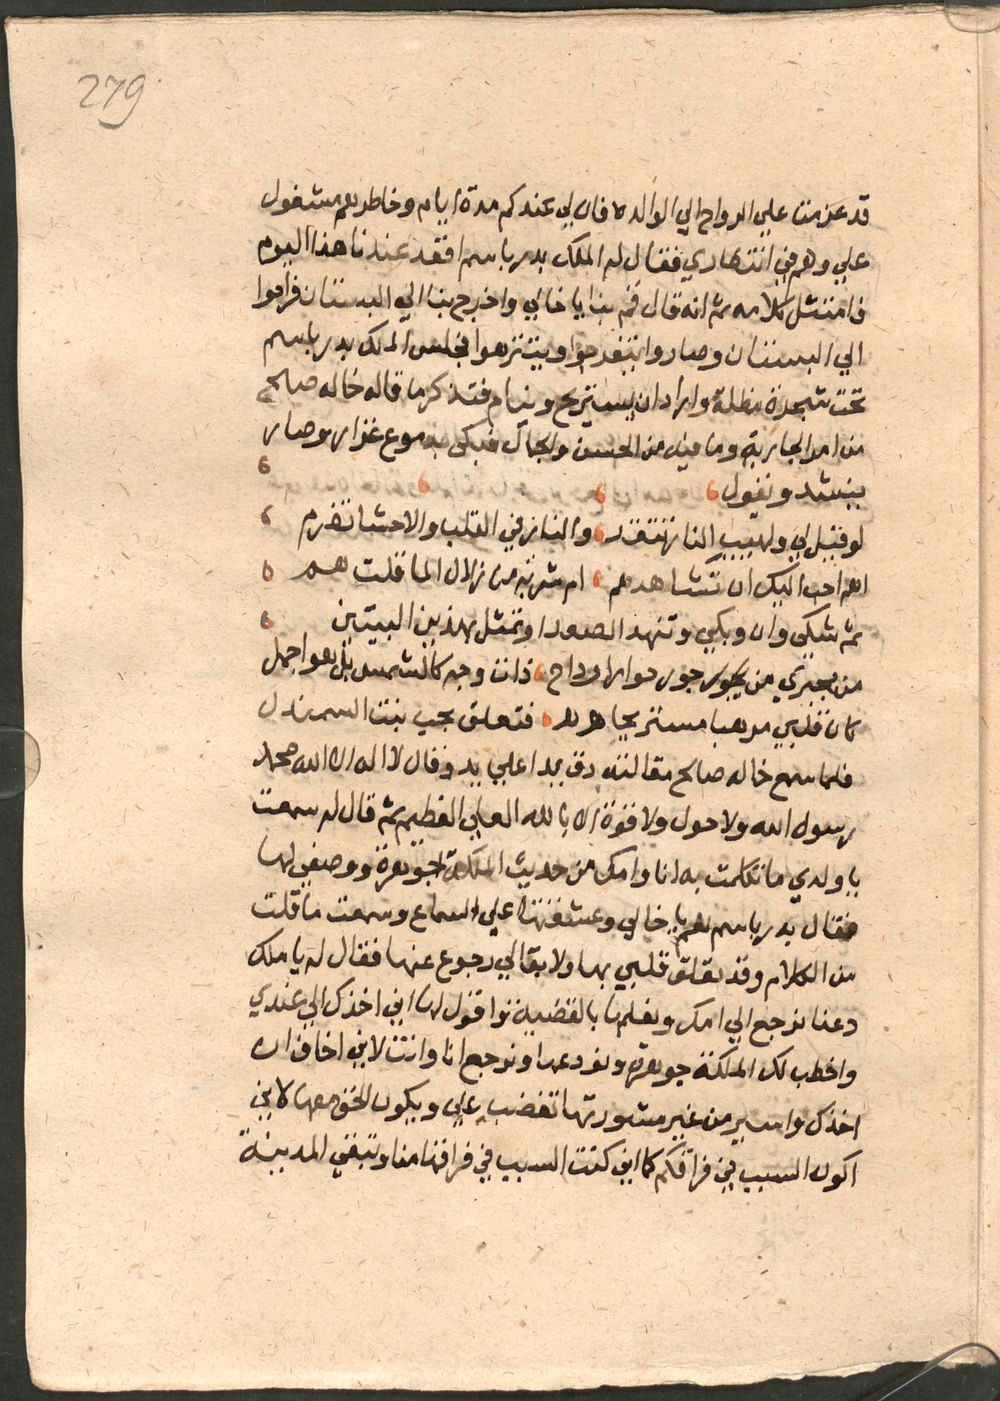 279
قد عزمت علي الرواح الي الوالده فان لي عندكم مدة ايام وخاطرهم مشغول
علي وهم في انتظاري فقال له الملك بدر باسم اقعد عندنا هذا اليوم
فامتثل كلامه ثم انه قال قم بنا يا خالي واخرج بنا الي البستان فراحوا
الي البستان وصاروا يتفرجوا ويتنزهوا فجلس الملك بدر باسم
تحت شجرة مظلة واراد ان يستريح وينام فتذكر ما قاله خاله صالح
من امر الجارية وما فيه من الحسن والجمال فبكى بدموع غزار وصار
ينشد ويقول
لو قيل لي ولهيب النار تتقد والنار في القلب والاحشا تضرم
اهم احب اليك ان تشاهدهم ام شربة من زلال الما قلت هم
ثم شكي وان وبكي وتنهد الصعدا وتمثل بهذين البيتين
من مجيري من بجور جور حوار رداح ذات وجه كالشمس بل هو اجمل
كان قلبي من حبها مستريحا فتعلق بحب بنت السمندل
فلما سمع خاله صالح مقالته دق يدا علي يد وقال لا اله الا الله محمد
رسول الله ولا حول ولا قوة الا بالله العلي العظيم ثم قال له سمعت
يا ولدي ما تكلمت به انا وامك من حديث الملكة جوهرة ووصفي لها
فقال بدر باسم نعم يا خالي وعشقتها علي السماع وسمعت ما قلت
من الكلام وقد تعلق قلبي بها ولا بقا لي رجوع عنها فقال له يا ملك
دعنا نرجع الي امك ونعلمها بالقضية واقول لها اني اخذك الي عندي
واخطب لك الملكة جوهرة ونودعها ونرجع انا وانت لاني اخاف ان
اخذك واسير من غير مشورتها تغضب علي ويكون الحق معها لاني
اكون السبب في فراقكم كما اني كنت السبب في فراقها منا وتبقي المدينة